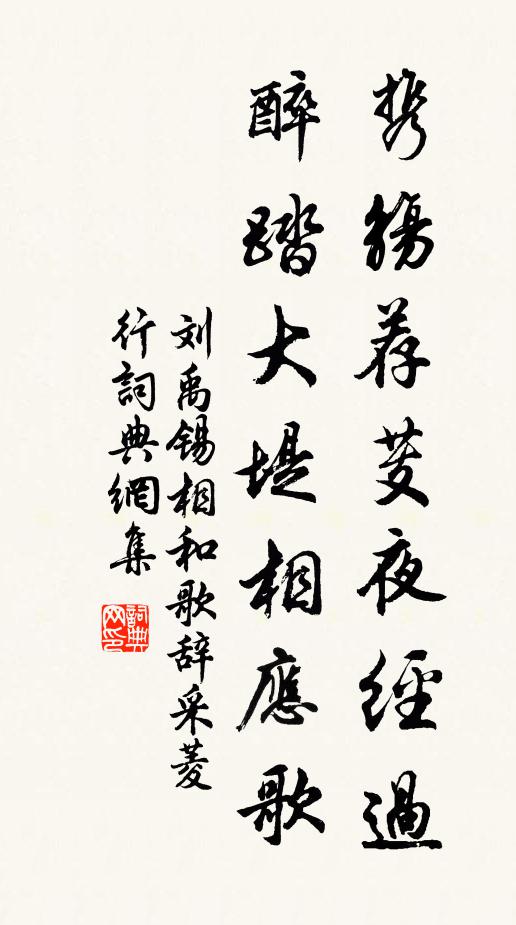 携觴荐芰夜經過
醉踏大堤相應歌
刘禹锡相和歌辞采菱
行詞典網集
詞典
网印